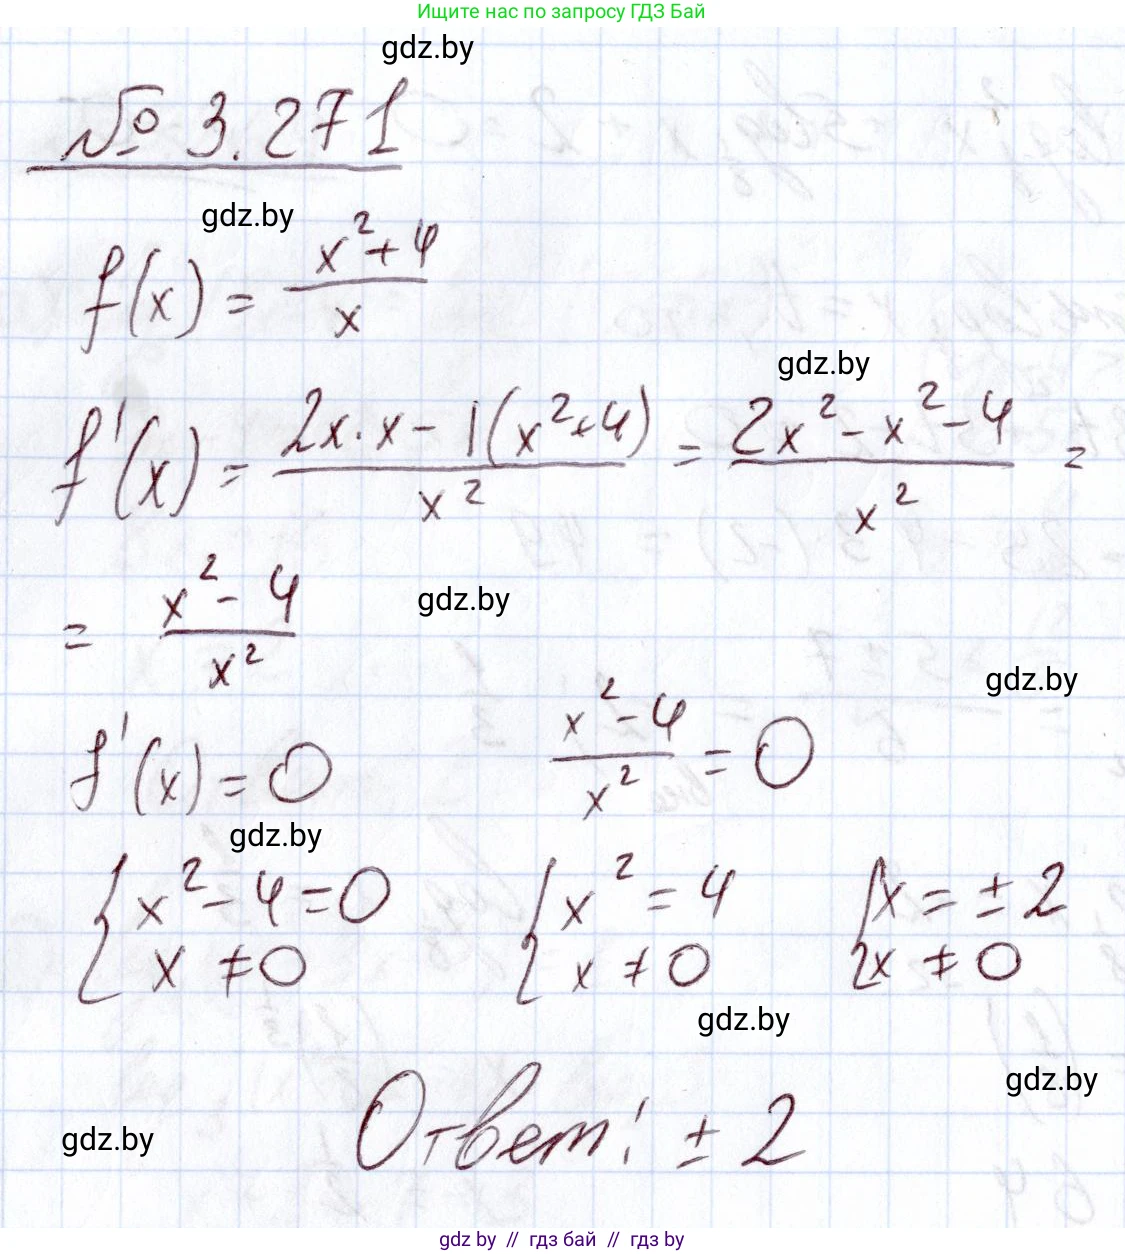 Ищите нас по запросу ГДЗ Бай
gdz.by
№ 3.271
gdz.by
f(x) = (x² + 4) / x
gdz.by
f'(x) = (2x · x - 1(x² + 4)) / x² = (2x² - x² - 4) / x² =
= (x² - 4) / x²
gdz.by
gdz.by
f'(x) = 0 (x² - 4) / x² = 0
gdz.by
{ x² - 4 = 0 { x² = 4 { x = ± 2
x ≠ 0 x ≠ 0 x ≠ 0
gdz.by
gdz.by
Ответ: ± 2
gdz.by
gdz.by // гдз бай // гдз by